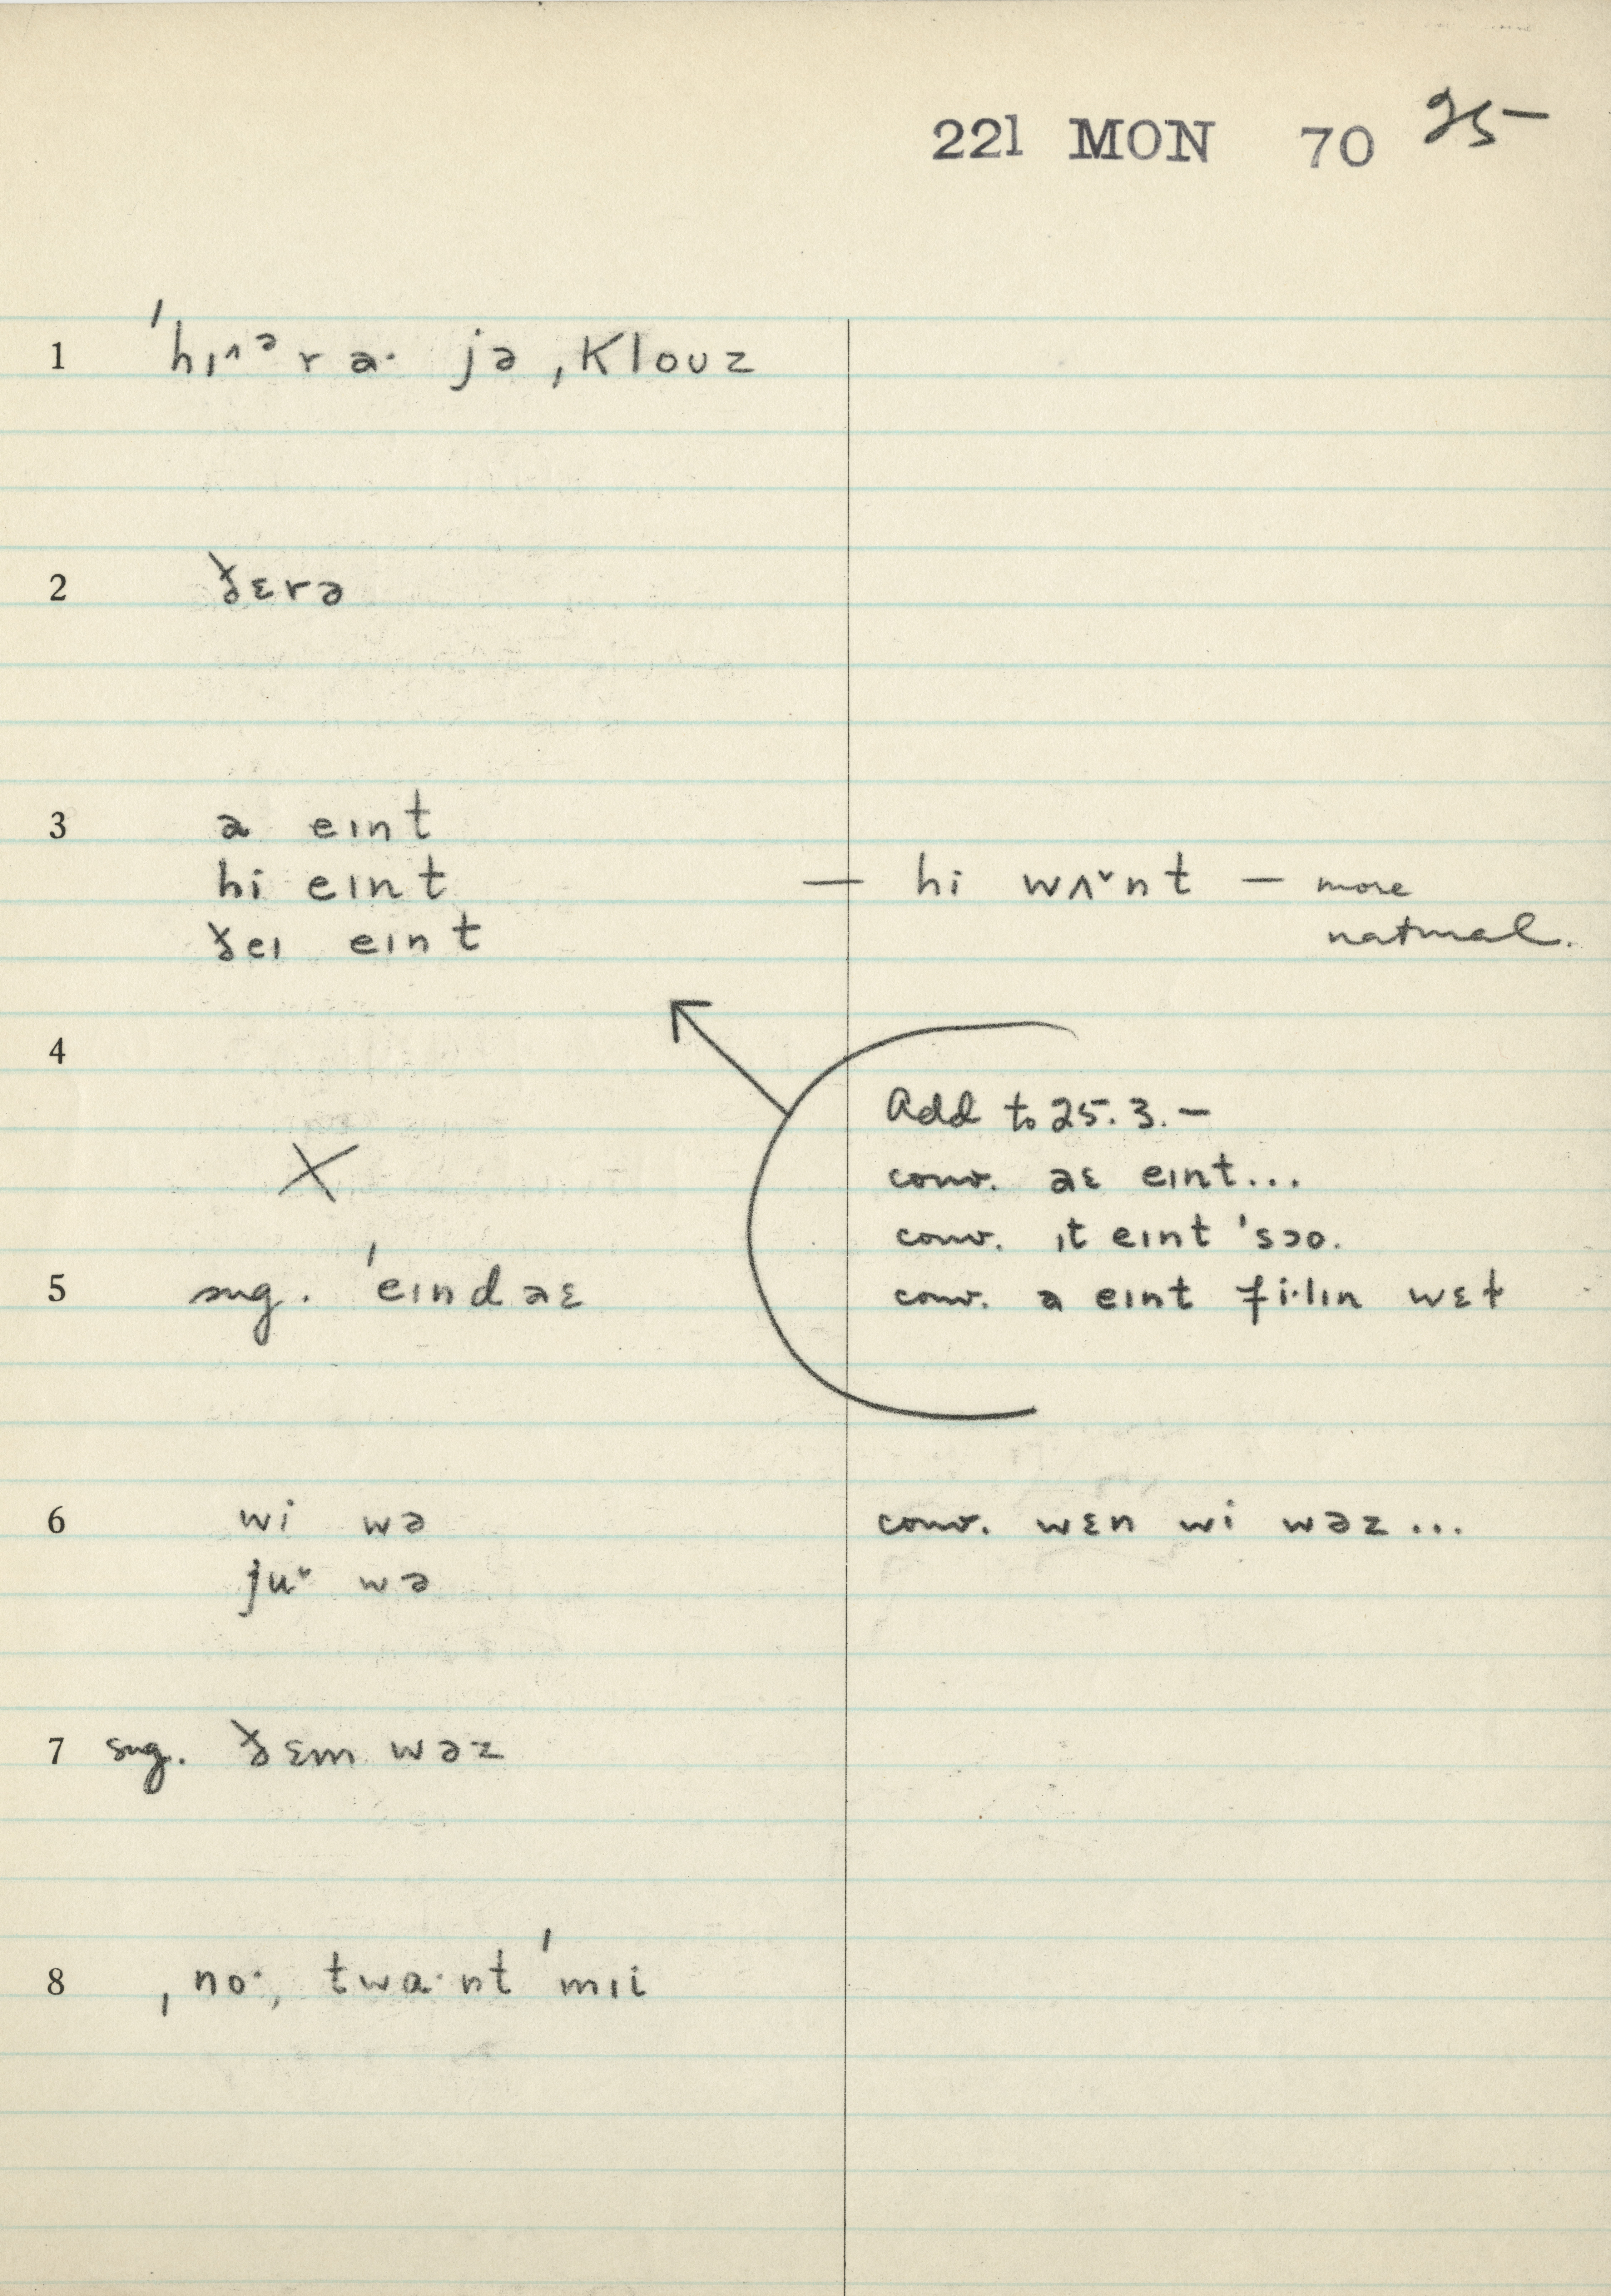 221 MON 70 25
1 ˈhɪ^ᵊr a· jə ˌklouz
2 ðɛrə
3 a eɪnt
hi eɪnt — hi wʌˇnt — more
ðeɪ eɪnt natural.
4
Add to 25.3.—
conv. aɛ eɪnt...
X
conv. ɪt eɪnt ˈsɔo.
5 sug. ˈeɪnd aɛ
conv. a eɪnt fi·lɪn wɛɫ
6 wi wə conv. wɛn wi wəz...
juˇ wə
7 sug. ðɛm wəz
8 ˌno·, twa·nt ˈmɪi